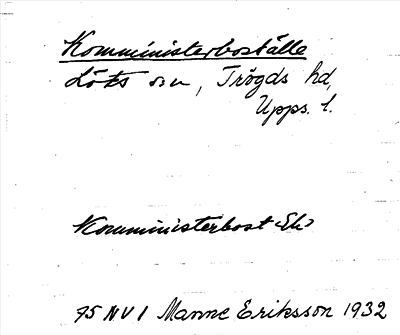 Komministerboställe
Löts sn, Trögds hd,
Upps. l.
Komministerbost
95 NV 1 Manne Eriksson 1932